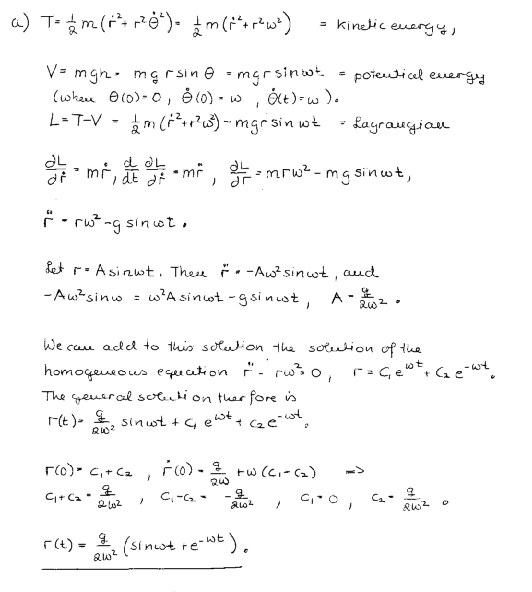 a) T= ½ m (ṙ² + r²θ̇²) = ½ m (ṙ² + r²ω²) = kinetic energy,
V= mgh = mg r sin θ = mgr sin ωt = potential energy
(when θ(0) = 0, θ̇(0) = ω, θ̇(t) = ω).
L = T-V = ½ m (ṙ² + r²ω²) - mgr sin ωt = Lagrangian
∂L/∂ṙ = mṙ, d/dt ∂L/∂ṙ = mr̈, ∂L/∂r = mrω² - mg sin ωt,
r̈ = rω² - g sin ωt.
Let r = A sin ωt. Then r̈ = -Aω² sin ωt, and
-Aω² sin ω = ω²A sin ωt - g sin ωt, A = g/2ω².
We can add to this solution the solution of the
homogeneous equation r̈ - rω² = 0, r = C₁ e^ωt + C₂ e^-ωt.
The general solution therfore is
r(t) = g/2ω² sin ωt + C₁ e^ωt + C₂ e^-ωt.
r(0) = C₁ + C₂, ṙ(0) = g/2ω + ω (C₁ - C₂) =>
C₁ + C₂ = g/2ω², C₁ - C₂ = -g/2ω², C₁ = 0, C₂ = g/2ω².
r(t) = g/2ω² (sin ωt + e^-ωt).